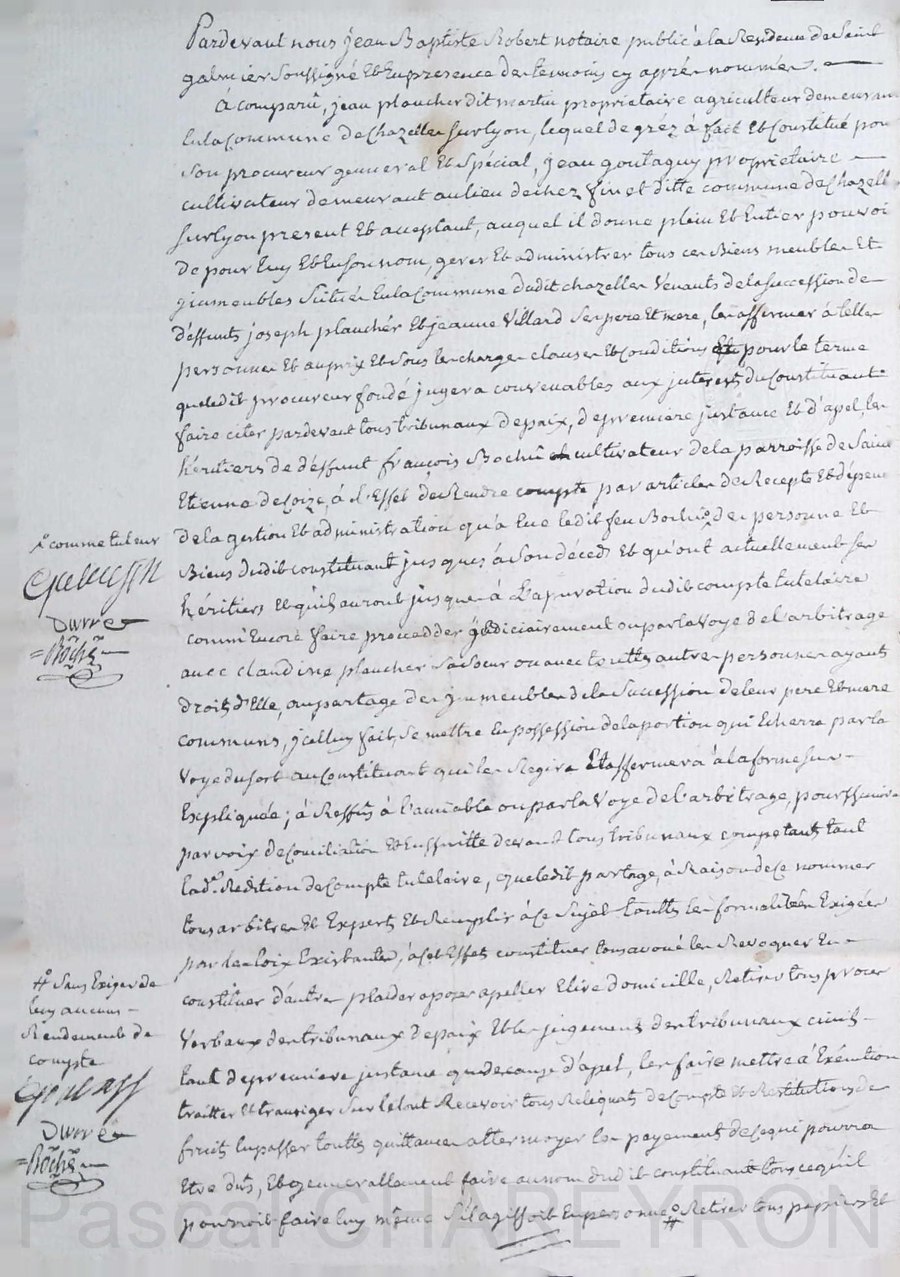 Pardevant nous jean Baptiste Robert notaire public à la Residence de Saint
galmier Soussigné Et En presence des temoins cy aprés nommés.
A comparû, jean plancher dit martin proprietaire agriculteur demeurant
En la Commune de Chazelles sur lyon, lequel de gréz à fait Et Constitué pour
Son procureur general Et Spécial, jean goutagny proprietaire
cultivateur demeurant au lieu de chez finet ditte commune de Chazell
sur lyon present Et acceptant, auquel il donne plein Et Entier pouvoi
De pour luy Et En son nom, gerer Et administrer tous ces Biens meubles Et
jmmeubles Sitüés En la Commune dudit chazelles Venants de la Succession de
deffunts joseph planchér Et jeanne Villard Ses pere Et mere, les affermer à telles
personnes Et au prix Et Sous les charges clauses Et Conditions pour le terme
que ledit procureur fondé jugera convenables aux juterets du Constituant
faire citer pardevant tous tribunaux de paix, de premiere justance Et d'apel, les
héritiers de deffunt françois Bochû cultivateur de la parroisse de Saint
Etienne de Coize, à l'Effet de Rendre compte par articles de Recepte Et dépense
de la gestion Et administration qu'a Eue ledit feu Bochu des personne Et
Biens dudit constituant jusques à Son décéds Et qu'ont actuellement Ses
héritiers Et qu'ils auront jusques à L'apuration dudit compte tutelaire
comm'Encore faire proceder judiciairement ou par la Voye de l'arbitrage
avec claudine plancher Sa Sœur ou avec touttes autres personnes ayants
droits d'Elle, au partage des jmmeubles de la Succession de leur pere Et mere
communs, jcelluy fait, Se mettre En possession de la portion qui Echerra par la
Voye du Sort au Constituant qui les Regira Et affermera à la forme Sus
Expliquée; à Reffus à l'amiable ou par la Voye de l'arbitrage, poursuivre
par voix de Conciliation Et Ensuitte devant tous tribunaux competants tant
lade Redition de Compte tutelaire, que ledit partage, à Raison de ce nommer
tous arbitres Et Experts Et Remplir à ce Sujet touttes les formalitées Exigées
par les loix Existantes, à cet Effet constituer tous avoué les Revoquer En
constituer d'autres plaider oposer apeller Elire domicille, Retirer tous procer
Verbaux des tribunaux de paix Et les jugements des tribunaux civils
tant de premiere justance que de cause d'apel, les faire mettre à Exécution
traitter Et transiger Sur le tout Recevoir tous Reliquats de Compte Et Restitutions de
fruits En passer touttes quittances attermoyer les payements de ce qui pourra
Etre du, Et generallement faire au nom dudit constituant tous ce qu'il
pourroit faire luy même S'il agissoit En personne Retirer tous papiers Et
comme tuteur
Dvvre
Bochu
# Sans Exiger de
luy aucuns
Rendements de
compte
Dvvre
Bochu
Pascal CHAREYRON